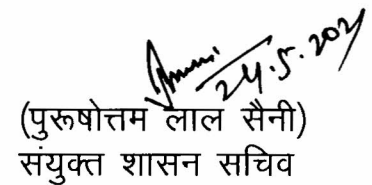 24.5.202
(पुरूषोत्तम लाल सैनी)
संयुक्त शासन सचिव